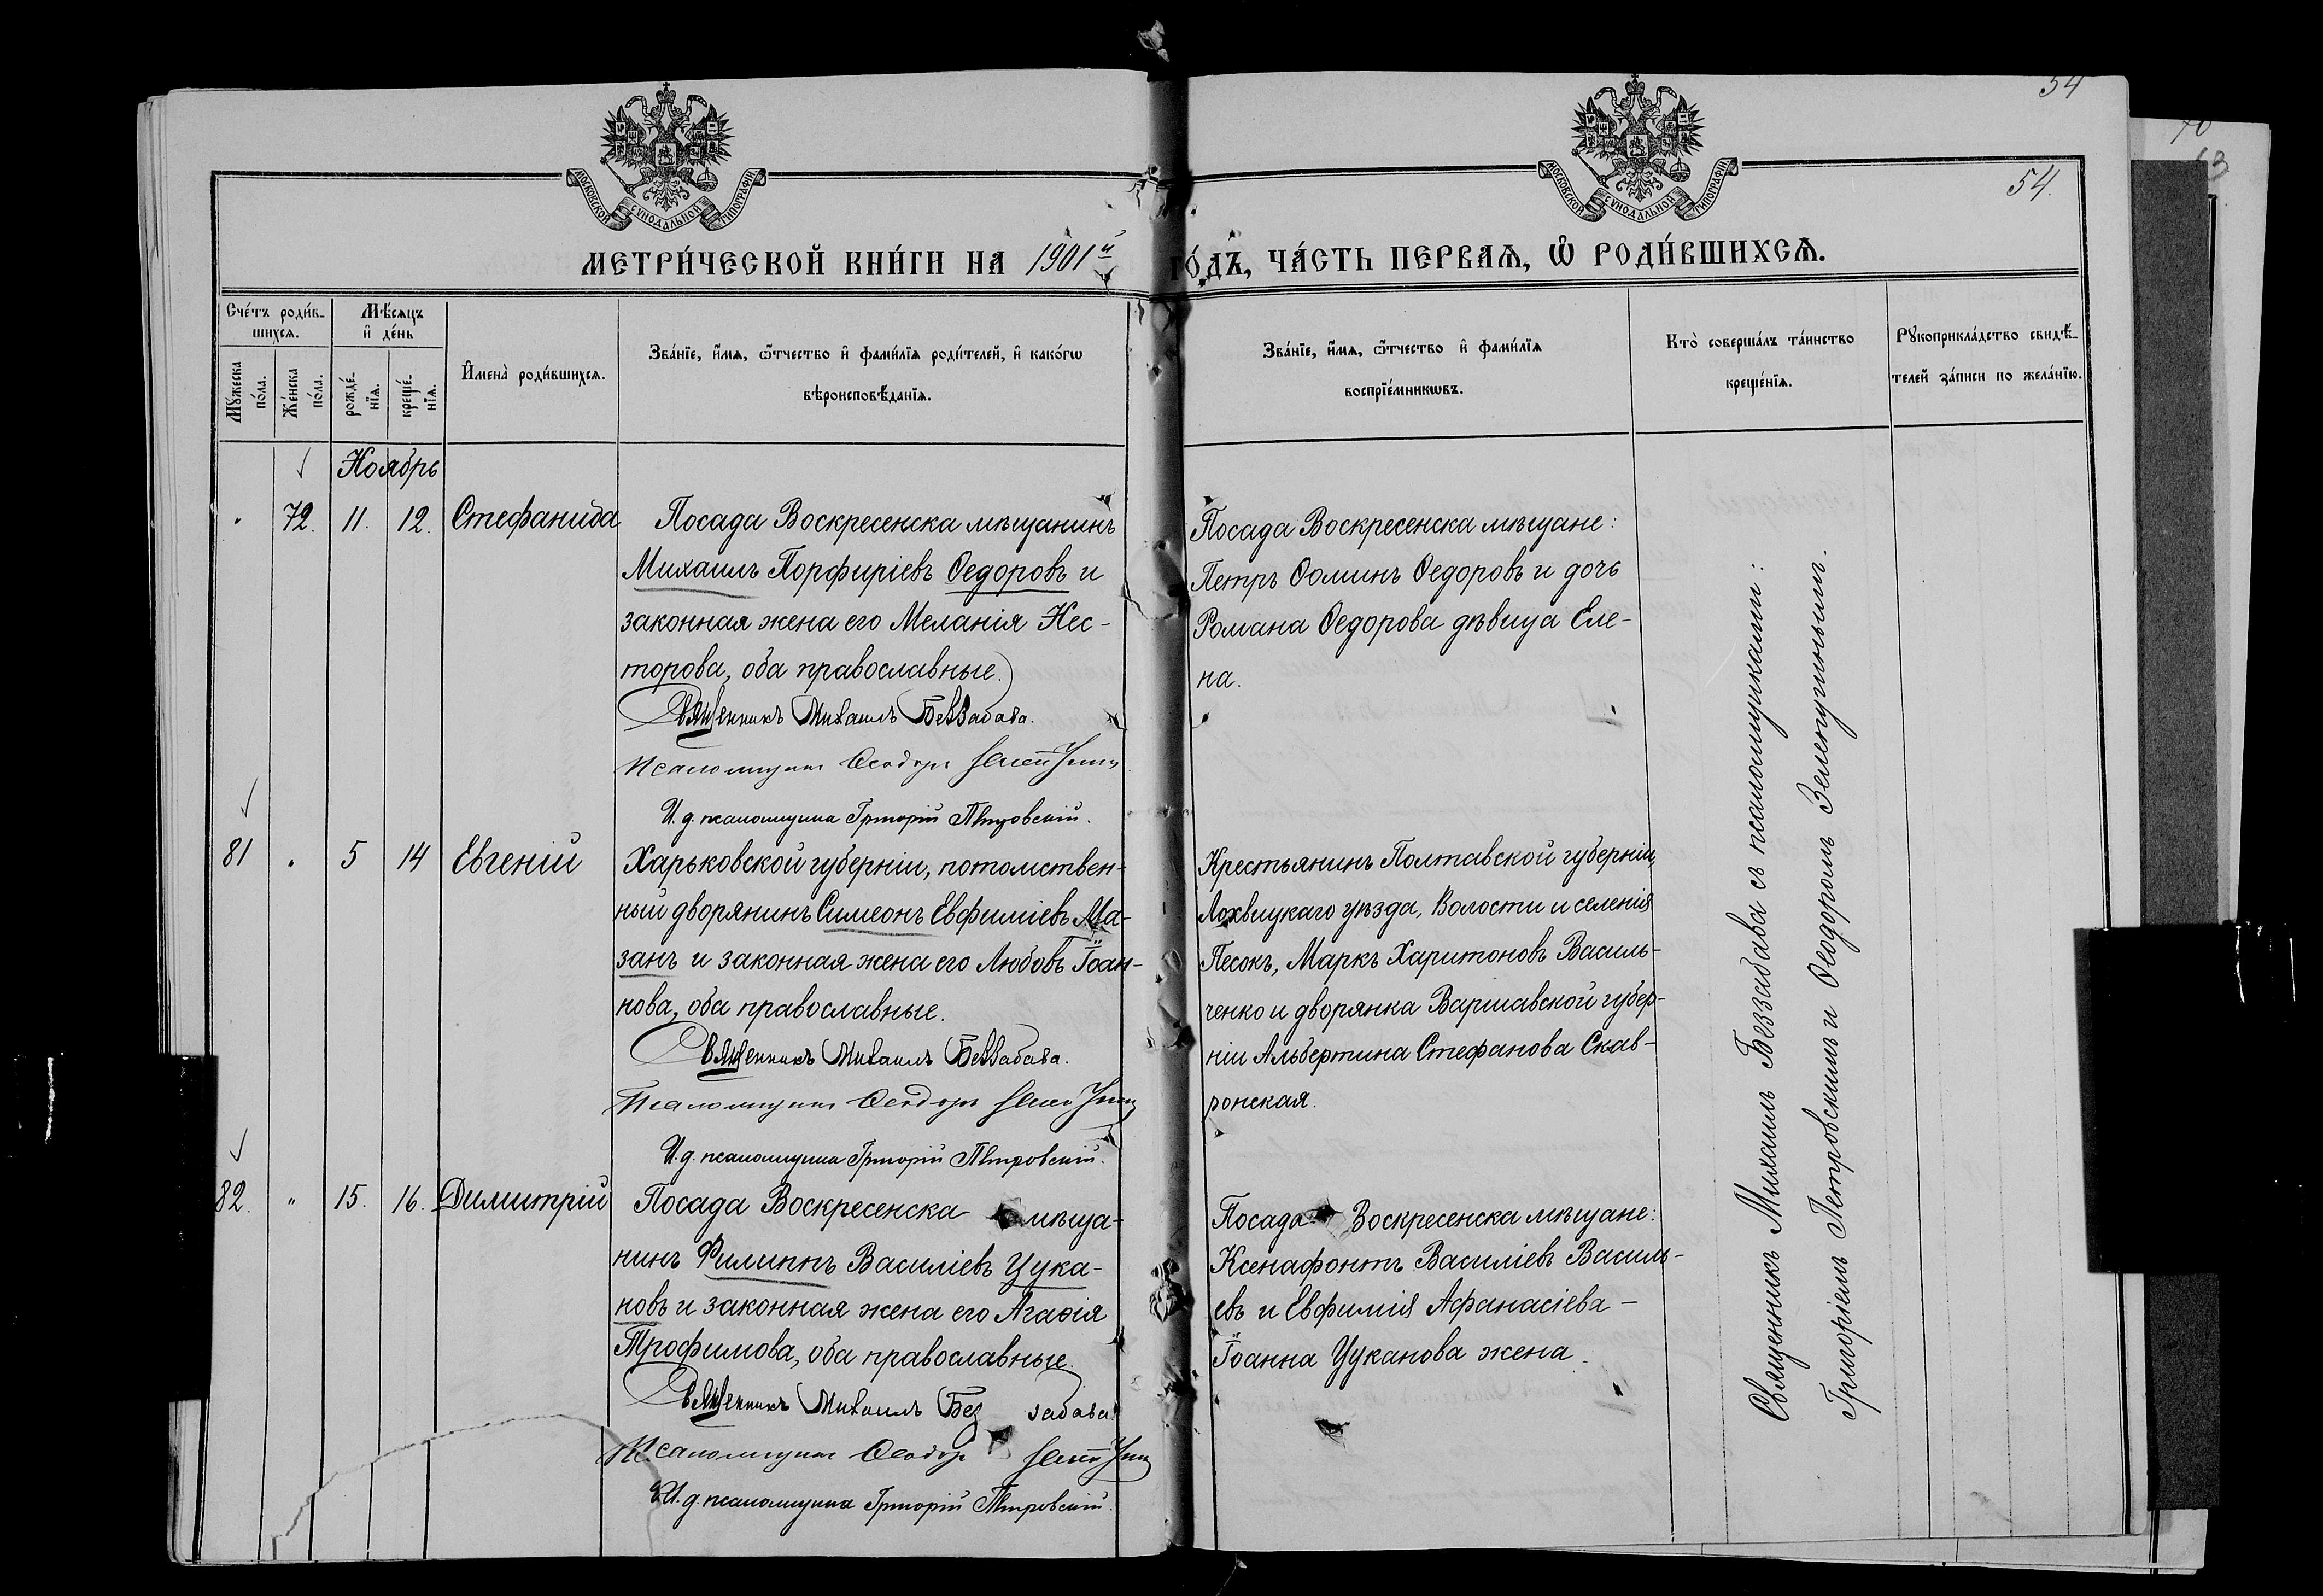 54
70
54.
МОСКОВСКОЙ СѴНОДАЛЬНОЙ ТИПОГРАФІИ
МОСКОВСКОЙ СѴНОДАЛЬНОЙ ТИПОГРАФІИ
МЕТРИ́ЧЕСКОЙ КНИ́ГИ НА 1901й ГО́ДЪ, ЧА́СТЬ ПЕРВАѦ, Ѡ҆ РОДИ́ВШИХСѦ.
Сче́тъ роди́в-
шихсѧ.
Мѣ́сѧцъ
и҆ де́нь
Мꙋ́жеска по́ла.
Же́нска по́ла.
рожде́-нїѧ.
креще́-нїѧ.
И҆мена̀ роди́вшихсѧ.
Зва́нїе, и҆́мѧ, ѻ҆́тчество и҆ фами́лїѧ роди́телей, и҆ како́гѡ
вѣроисповѣ́данїѧ.
Зва́нїе, и҆́мѧ, ѻ҆́тчество и҆ фами́лїѧ
воспрїе́мникѡвъ.
Кто̀ соверша́лъ та́инство
креще́нїѧ.
Рꙋкоприкла́дство свидѣ́-
телей за́писи по жела́нїю.
Ноябрь
" 72. 11. 12. Стефанида
Посада Воскресенска мѣщанинъ
Михаилъ Порфиріевъ Ѳедоровъ и
законная жена его Меланія Нес-
торова, оба православные.
Священникъ Михаилъ Беззабава.
Псаломщикъ Ѳеодоръ
И. д. псаломщика Григорій Петровскій.
Посада Воскресенска мѣщане:
Петръ Ѳоминъ Ѳедоровъ и дочь
Романа Ѳедорова дѣвица Еле-
на.
81 " 5 14 Евгеній
Харьковской губерніи, потомствен-
ный дворянинъ Симеонъ Евфиміевъ Ма-
занъ и законная жена его Любовь Іоан-
нова, оба православные.
Священникъ Михаилъ Беззабава.
Псаломщикъ Ѳеодоръ
И. д. псаломщика Григорій Петровскій.
Крестьянинъ Полтавской губерніи,
Лохвицкаго уѣзда, Волости и селенія
Песокъ, Маркъ Харитоновъ Василь-
ченко и дворянка Варшавской губер-
ніи Альбертина Стефанова Скав-
ронская.
82. " 15. 16. Димитрій
Посада Воскресенска мѣща-
нинъ Филиппъ Василіевъ Цука-
новъ и законная жена его Агаѳія
Трофимова, оба православные.
Священникъ Михаилъ Без забава.
Псаломщикъ Ѳеодоръ
И. д. псаломщика Григорій Петровскій.
Посада Воскресенска мѣщане:
Ксенафонтъ Василіевъ Василь-
евъ и Евфимія Афанасіева -
Іоанна Цуканова жена.
Священникъ Михаилъ Беззабава съ псаломщиками:
Григоріемъ Петровскимъ и Ѳеодоромъ Зелепугинымъ.